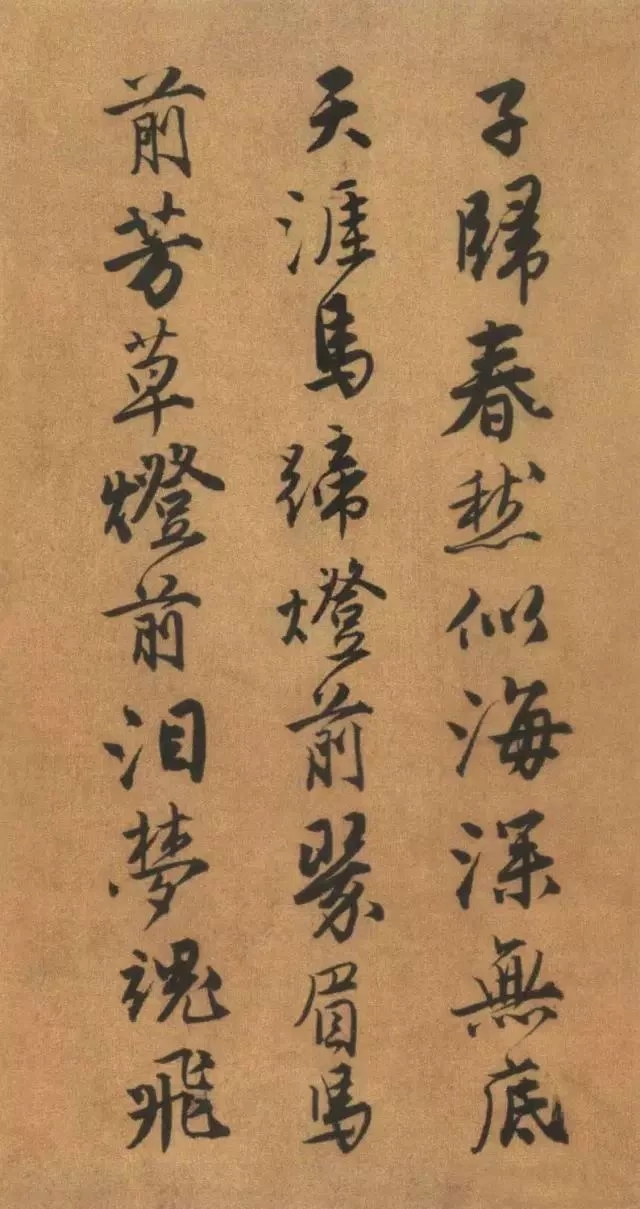 子歸春愁似海深無底
天涯馬蹄燈前翠眉馬
前芳草燈前泪夢魂飛